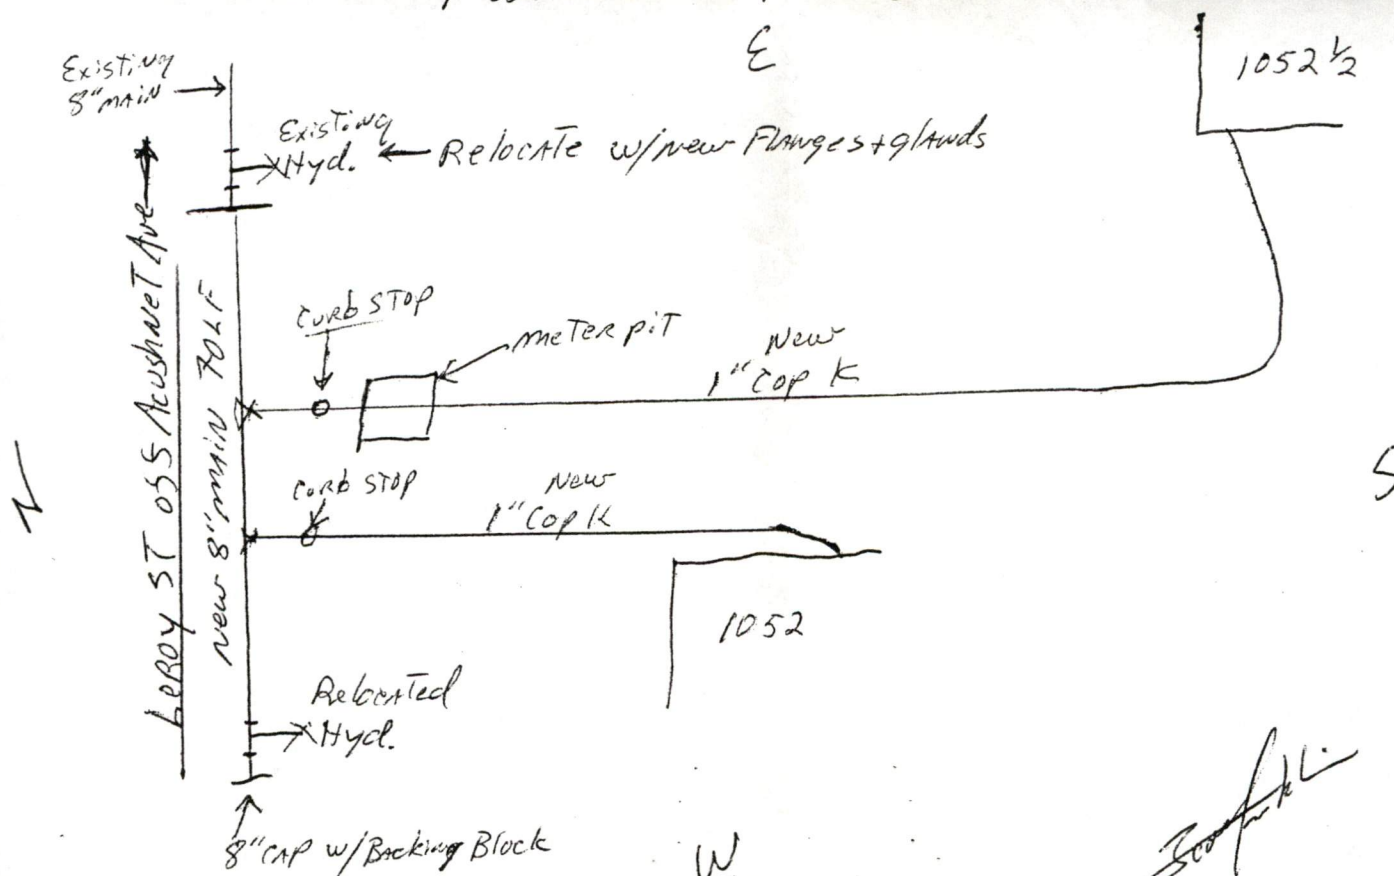 E
1052 1/2
Existing
8" MAIN
Existing
Hyd.
Relocate w/new Flanges + glands
Leroy ST off Acushnet Ave
New 8" MAIN 70LF
curb STOP
meter pit
New
1" Cop K
N
S
curb STOP
New
1" Cop K
1052
Relocated
Hyd.
8" CAP w/Backing Block
W